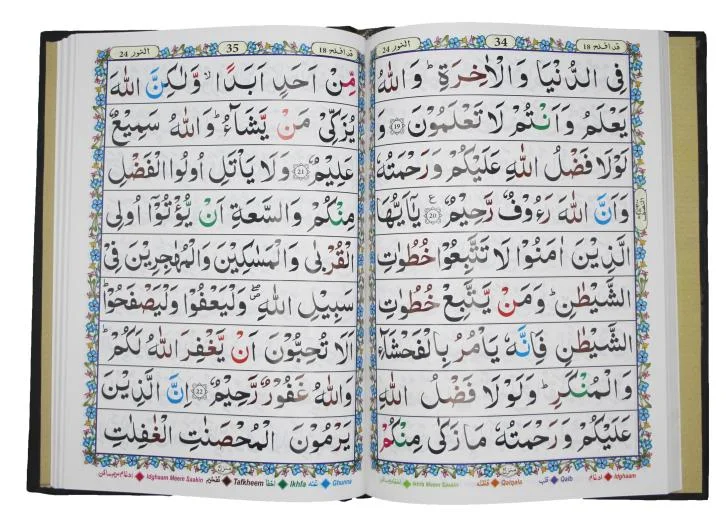 قد افلح 18
34
النور 24
فِی الدُّنْیَا وَ الْاٰخِرَةِ ؕ وَ اللّٰهُ
یَعْلَمُ وَ اَنْتُمْ لَا تَعْلَمُوْنَ 19 وَ
لَوْ لَا فَضْلُ اللّٰهِ عَلَیْكُمْ وَ رَحْمَتُهٗ
وَ اَنَّ اللّٰهَ رَءُوْفٌ رَّحِیْمٌ 20 ع یٰۤاَیُّهَا
الَّذِیْنَ اٰمَنُوْا لَا تَتَّبِعُوْا خُطُوٰتِ
الشَّیْطٰنِ ؕ وَ مَنْ یَّتَّبِعْ خُطُوٰتِ
الشَّیْطٰنِ فَاِنَّهٗ یَاْمُرُ بِالْفَحْشَآءِ
وَ الْمُنْكَرِ ؕ وَ لَوْ لَا فَضْلُ اللّٰهِ
عَلَیْكُمْ وَ رَحْمَتُهٗ مَا زَكٰی مِنْكُمْ
ادغام Idghaam
قلب Qalb
قلقله Qalqala
Ikhfa Meem Saakin
قد افلح 18
35
النور 24
مِّنْ اَحَدٍ اَبَدًا ۙ وَّ لٰكِنَّ اللّٰهَ
یُزَكِّیْ مَنْ یَّشَآءُ ؕ وَ اللّٰهُ سَمِیْعٌ
عَلِیْمٌ 21 وَ لَا یَاْتَلِ اُولُوا الْفَضْلِ
مِنْكُمْ وَ السَّعَةِ اَنْ یُّؤْتُوْۤا اُولِی
الْقُرْبٰی وَ الْمَسٰكِیْنَ وَ الْمُهٰجِرِیْنَ فِیْ
سَبِیْلِ اللّٰهِ ۪ۖ وَ لْیَعْفُوْا وَ لْیَصْفَحُوْا ؕ
اَلَا تُحِبُّوْنَ اَنْ یَّغْفِرَ اللّٰهُ لَكُمْ ؕ
وَ اللّٰهُ غَفُوْرٌ رَّحِیْمٌ 22 اِنَّ الَّذِیْنَ
یَرْمُوْنَ الْمُحْصَنٰتِ الْغٰفِلٰتِ
غنه Ghunna
اخفا Ikhfa
تفخیم Tafkheem
ادغام میم ساکن Idghaam Meem Saakin